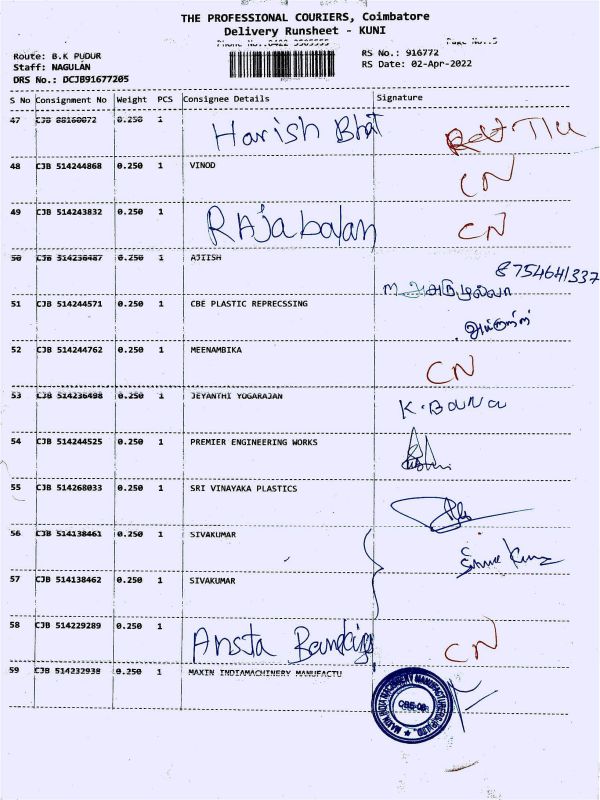 THE PROFESSIONAL COURIERS, Coimbatore
Delivery Runsheet - KUNI
Phone No.:0422 3505555 Page No.:5
Route: B.K PUDUR
RS No.: 916772
Staff: NAGULAN
RS Date: 02-Apr-2022
DRS No.: DCJB91677205
S No Consignment No Weight PCS Consignee Details Signature
47 CJB 88160072 0.250 1 Harish Bhat
48 CJB 514244868 0.250 1 VINOD CN
49 CJB 514243832 0.250 1 RAjabalan CN
50 CJB 514236487 0.250 1 AJIISH 8754641337
51 CJB 514244571 0.250 1 CBE PLASTIC REPRECSSING
52 CJB 514244762 0.250 1 MEENAMBIKA CN
53 CJB 514236498 0.250 1 JEYANTHI YOGARAJAN K.Bana
54 CJB 514244525 0.250 1 PREMIER ENGINEERING WORKS
55 CJB 514268033 0.250 1 SRI VINAYAKA PLASTICS
56 CJB 514138461 0.250 1 SIVAKUMAR
57 CJB 514138462 0.250 1 SIVAKUMAR
58 CJB 514229289 0.250 1 Ansta CN
59 CJB 514232938 0.250 1 MAXIN INDIAMACHINERY MANUFACTU